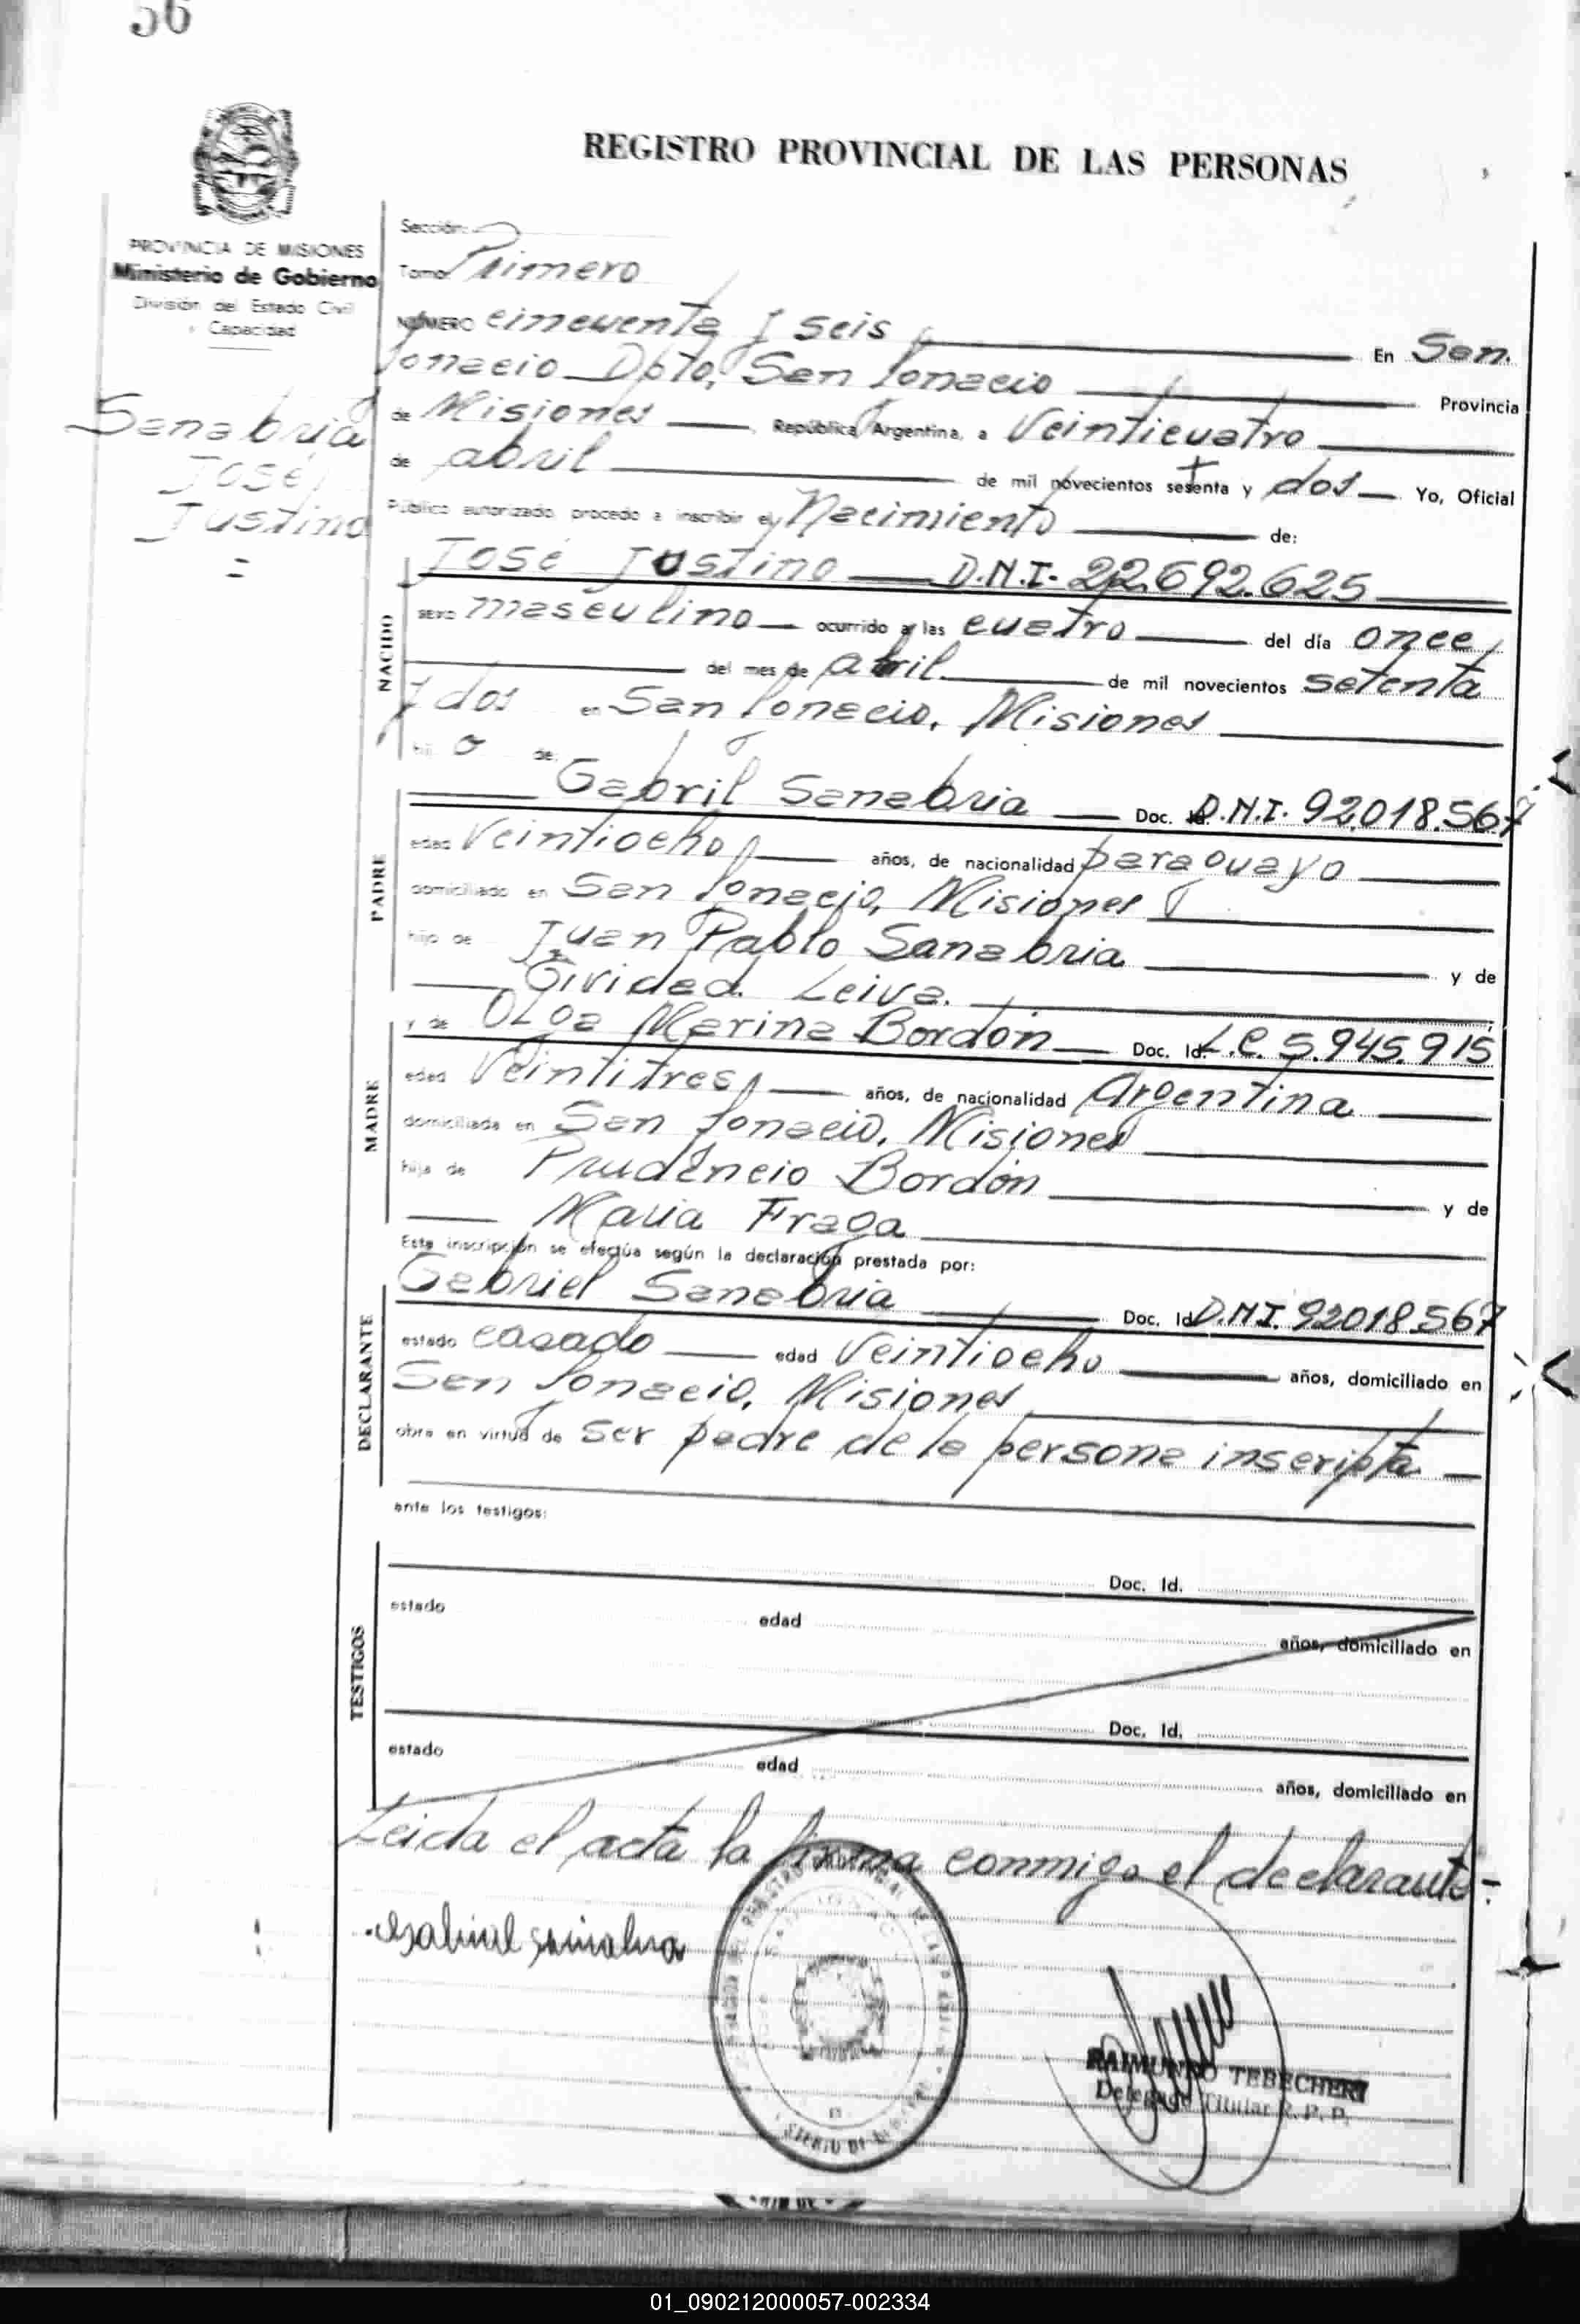 56
REGISTRO PROVINCIAL DE LAS PERSONAS
PROVINCIA DE MISIONES
Ministerio de Gobierno
División del Estado Civil
y Capacidad
Sanabria
José
Justino
=
Sección:
Tomo: Primero
NÚMERO cincuenta y seis En San
Ignacio Dpto, San Ignacio Provincia
de Misiones República Argentina, a Veinticuatro
de abril de mil novecientos setenta y dos Yo, Oficial
Público autorizado, procedo a inscribir el Nacimiento de:
NACIDO
José Justino D.N.I. 22.692.625
sexo masculino ocurrido a las cuatro del día once
del mes de abril de mil novecientos setenta
y dos en San Ignacio, Misiones
hijo de:
PADRE
Gabril Sanabria Doc. Id. D.N.I. 92.018.567
edad Veintiocho años, de nacionalidad paraguayo
domiciliado en San Ignacio, Misiones
hijo de Juan Pablo Sanabria y de
Leiva.
MADRE
y de Olga Marina Bordón Doc. Id. L.C. 5.945.915
edad Veintitres años, de nacionalidad Argentina
domiciliada en San Ignacio, Misiones
hija de Prudencio Bordón y de
Maria Fraga
Esta inscripción se efectúa según la declaración prestada por:
DECLARANTE
Gabriel Sanabria Doc. Id. D.N.I. 92018567
estado casado edad Veintiocho años, domiciliado en
San Ignacio, Misiones
obra en virtud de ser padre de la persona inscripta
ante los testigos:
TESTIGOS
Doc. Id.
estado edad años, domiciliado en
Doc. Id.
estado edad años, domiciliado en
Leida el acta la firma conmigo el declarante.-
Gabriel Sanabria
RAIMUNDO TEBECHERI
Delegado Titular R. P. P.
01_090212000057-002334